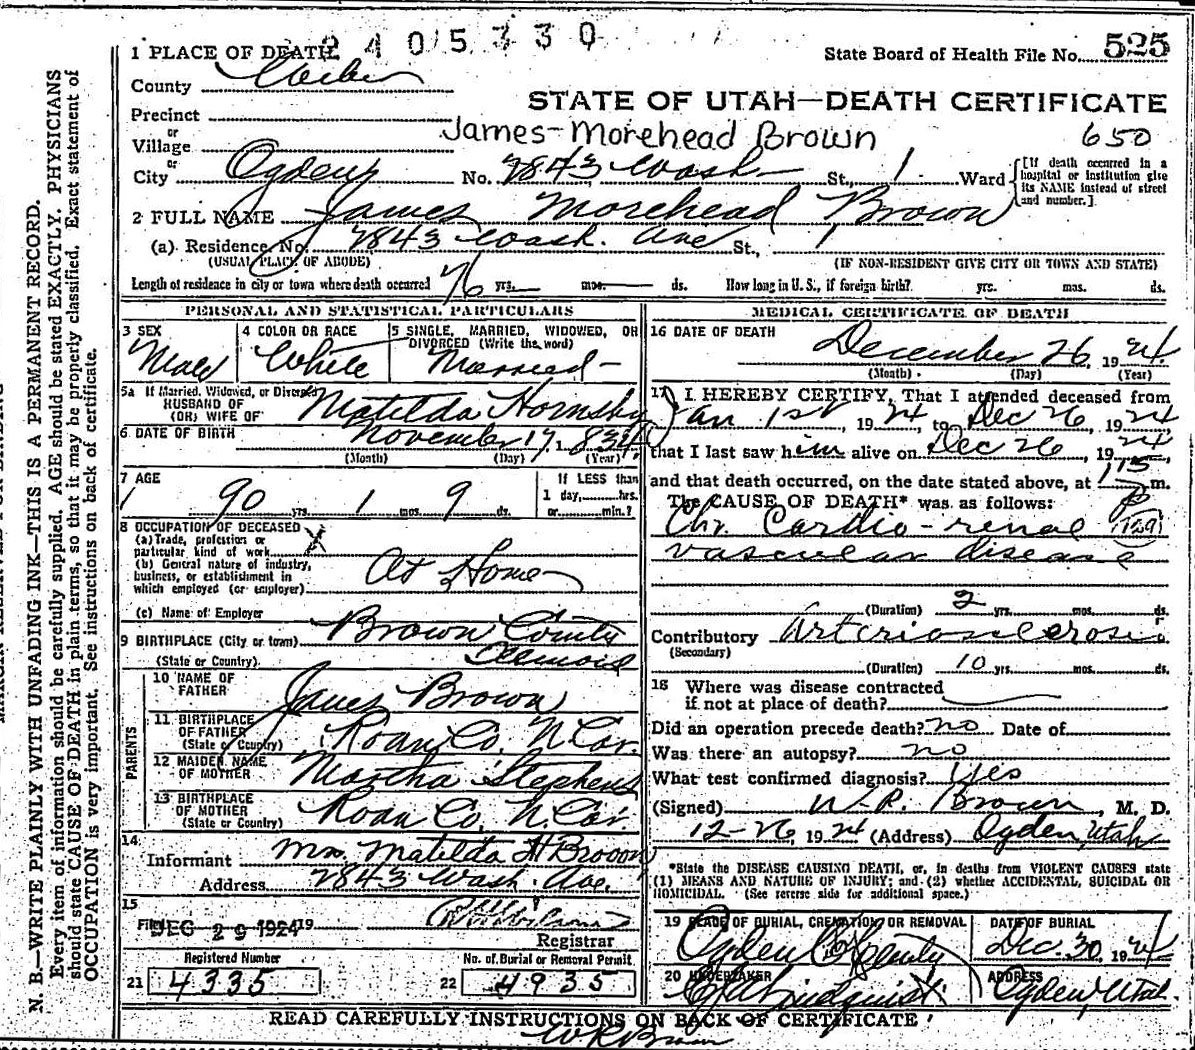 2405330
1 PLACE OF DEATH
State Board of Health File No. 525
County Weber
STATE OF UTAH—DEATH CERTIFICATE
Precinct
or
James-Morehead Brown
650
Village
or
City Ogden No. 2843 Wash St., 1 Ward [If death occurred in a hospital or institution give its NAME instead of street and number.]
2 FULL NAME James Morehead Brown
(a) Residence No. 2843 Wash. Ave St., 1
(USUAL PLACE OF ABODE) (IF NON-RESIDENT GIVE CITY OR TOWN AND STATE)
Length of residence in city or town where death occurred 76 yrs. mos. ds. How long in U. S., if foreign birth? yrs. mos. ds.
PERSONAL AND STATISTICAL PARTICULARS
3 SEX 4 COLOR OR RACE 5 SINGLE, MARRIED, WIDOWED, OR
DIVORCED (Write the word)
Male White Married
5a If Married, Widowed, or Divorced
HUSBAND OF
(OR) WIFE OF Matilda Hornsby
6 DATE OF BIRTH November 17, 1834
(Month) (Day) (Year)
7 AGE If LESS than
1 day, hrs.
90 yrs. 1 mos. 9 ds. or min.?
8 OCCUPATION OF DECEASED
(a) Trade, profession or
particular kind of work X
(b) General nature of industry,
business, or establishment in
which employed (or employer) At Home
(c) Name of Employer
9 BIRTHPLACE (City or town) Brown County
(State or Country)
PARENTS
10 NAME OF
FATHER James Brown
11 BIRTHPLACE
OF FATHER
(State or Country) Roan Co. N. Car.
12 MAIDEN NAME
OF MOTHER Martha Stephens
13 BIRTHPLACE
OF MOTHER
(State or Country) Roan Co. N. Car.
14
Informant Mrs. Matilda H Brown
Address 2843 Wash. Ave.
15
Filed DEC 29 1924 19
Registrar
Registered Number No. of Burial or Removal Permit.
21 4335 22 4935
MEDICAL CERTIFICATE OF DEATH
16 DATE OF DEATH
December 26, 1924
(Month) (Day) (Year)
17 I HEREBY CERTIFY, That I attended deceased from
Jan 1st, 1924, to Dec 26, 1924
that I last saw him alive on Dec 26, 1924
and that death occurred, on the date stated above, at 1:15 P m.
The CAUSE OF DEATH* was as follows:
Chr. Cardio-renal 129
vascular disease
(Duration) 2 yrs. mos. ds.
Contributory Arteriosclerosis
(Secondary)
(Duration) 10 yrs. mos. ds.
18 Where was disease contracted
if not at place of death?
Did an operation precede death? no Date of
Was there an autopsy? no
What test confirmed diagnosis? Yes
(Signed) W. R. Brown, M. D.
12-26, 1924 (Address) Ogden, Utah
*State the DISEASE CAUSING DEATH, or, in deaths from VIOLENT CAUSES state
(1) MEANS AND NATURE OF INJURY; and (2) whether ACCIDENTAL, SUICIDAL OR
HOMICIDAL. (See reverse side for additional space.)
19 PLACE OF BURIAL, CREMATION, OR REMOVAL DATE OF BURIAL
Ogden Dec. 30, 1924
20 UNDERTAKER ADDRESS
Lindquist Ogden, Utah.
READ CAREFULLY INSTRUCTIONS ON BACK OF CERTIFICATE
W R Brown
N. B.—WRITE PLAINLY WITH UNFADING INK—THIS IS A PERMANENT RECORD.
Every item of information should be carefully supplied. AGE should be stated EXACTLY. PHYSICIANS
should state CAUSE OF DEATH in plain terms, so that it may be properly classified. Exact statement of
OCCUPATION is very important. See instructions on back of certificate.